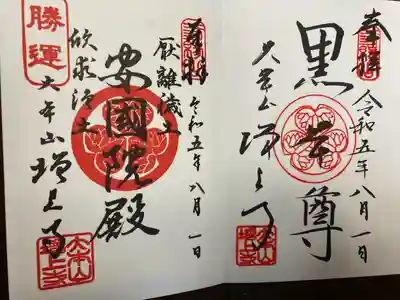 奉拝
令和五年八月一日
黒本尊
大本山
増上寺
大本山
増上寺
奉拝
令和五年八月一日
厭離穢土
安國院殿
欣求浄土
勝運
大本山
増上寺
大本山
増上寺